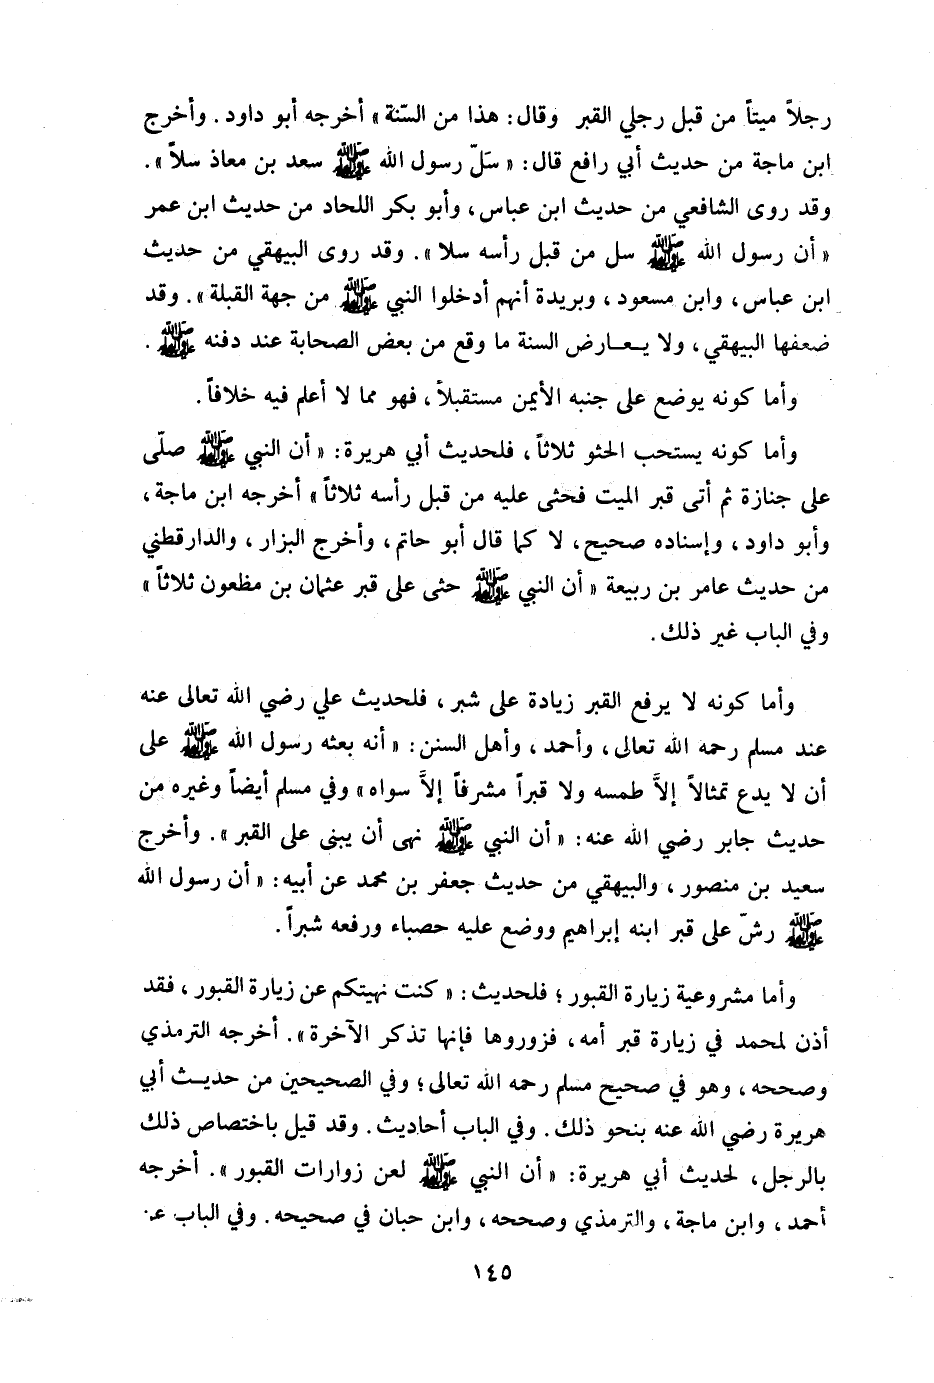 رجلاً ميتاً من قبل رجلي القبر وقال: هذا من السّنة» أخرجه أبو داود. وأخرج
ابن ماجة من حديث أبي رافع قال: «سَلّ رسول الله ﷺ سعد بن معاذ سلاً».
وقد روى الشافعي من حديث ابن عباس، وأبو بكر اللحاد من حديث ابن عمر
«أن رسول الله ﷺ سل من قبل رأسه سلا». وقد روى البيهقي من حديث
ابن عباس، وابن مسعود، وبريدة أنهم أدخلوا النبي ﷺ من جهة القبلة». وقد
ضعفها البيهقي، ولا يعارض السنة ما وقع من بعض الصحابة عند دفنه ﷺ.
وأما كونه يوضع على جنبه الأيمن مستقبلاً، فهو مما لا أعلم فيه خلافاً.
وأما كونه يستحب الحثو ثلاثاً، فلحديث أبي هريرة: «أن النبي ﷺ صلّى
على جنازة ثم أتى قبر الميت فحثى عليه من قبل رأسه ثلاثاً» أخرجه ابن ماجة،
وأبو داود، وإسناده صحيح، لا كما قال أبو حاتم، وأخرج البزار، والدارقطني
من حديث عامر بن ربيعة «أن النبي ﷺ حثى على قبر عثمان بن مظعون ثلاثاً»
وفي الباب غير ذلك.
وأما كونه لا يرفع القبر زيادة على شبر، فلحديث علي رضي الله تعالى عنه
عند مسلم رحمه الله تعالى، وأحمد، وأهل السنن: «أنه بعثه رسول الله ﷺ على
أن لا يدع تمثالاً إلاَّ طمسه ولا قبراً مشرفاً إلاَّ سواه» وفي مسلم أيضاً وغيره من
حديث جابر رضي الله عنه: «أن النبي ﷺ نهى أن يبنى على القبر». وأخرج
سعيد بن منصور، والبيهقي من حديث جعفر بن محمد عن أبيه: «أن رسول الله
ﷺ رشّ على قبر ابنه إبراهيم ووضع عليه حصباء ورفعه شبراً.
وأما مشروعية زيارة القبور؛ فلحديث: «كنت نهيتكم عن زيارة القبور، فقد
أذن لمحمد في زيارة قبر أمه، فزوروها فإنها تذكر الآخرة». أخرجه الترمذي
وصححه، وهو في صحيح مسلم رحمه الله تعالى؛ وفي الصحيحين من حديث أبي
هريرة رضي الله عنه بنحو ذلك. وفي الباب أحاديث. وقد قيل باختصاص ذلك
بالرجل، لحديث أبي هريرة: «أن النبي ﷺ لعن زوارات القبور». أخرجه
أحمد، وابن ماجة، والترمذي وصححه، وابن حبان في صحيحه. وفي الباب
١٤٥